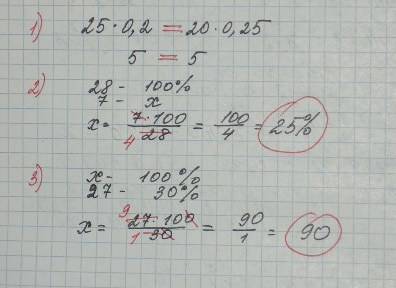 1) 25·0,2 = 20·0,25
5 = 5
2) 28 - 100%
7 - x
x = 7·100/28 = 100/4 = 25%
4
3) x - 100%
27 - 30%
x = 27·100/30 = 90/1 = 90
9
1